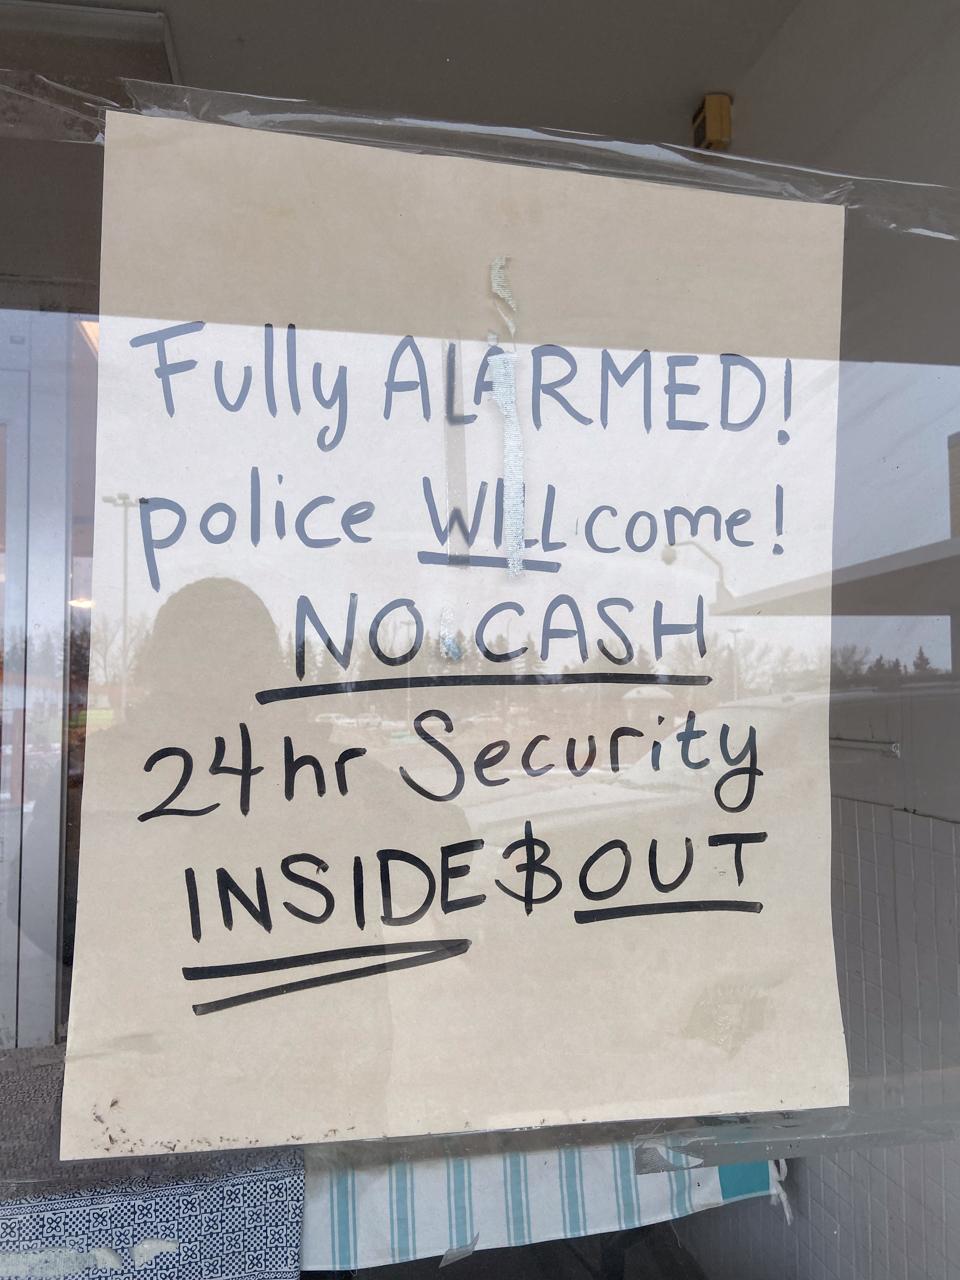 Fully ALARMED!
police WILLcome!
NO CASH
24hr Security
INSIDE & OUT